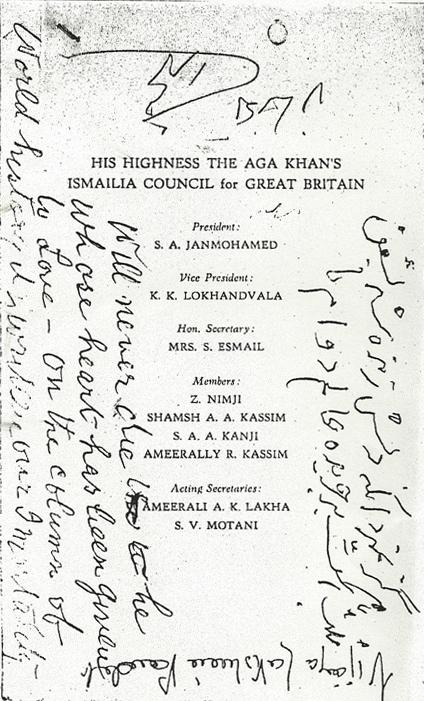 HIS HIGHNESS THE AGA KHAN'S
ISMAILIA COUNCIL for GREAT BRITAIN
President:
S. A. JANMOHAMED
Vice President:
K. K. LOKHANDVALA
Hon. Secretary:
MRS. S. ESMAIL
Members:
Z. NIMJI
SHAMSH A. A. KASSIM
S. A. A. KANJI
AMEERALLY R. KASSIM
Acting Secretaries:
AMEERALI A. K. LAKHA
S. V. MOTANI
هرگز نمیرد آنکه دلش زنده شد بعشق
ثبت است بر جریده عالم دوام ما
Will never die he
whose heart has been given
to Love – on the column of
World history is written our Immortality
Vijaya Lakshmi